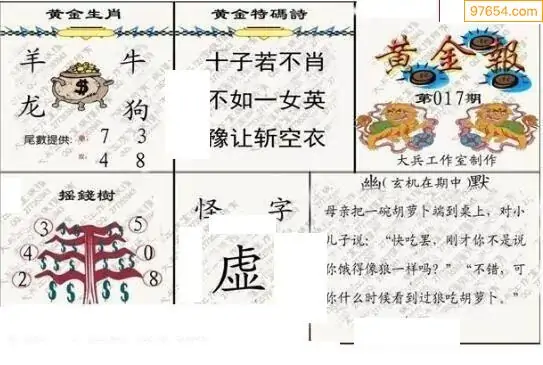 97654.com
黄金生肖
羊 牛
龙 狗
尾數提供: 7 3
4 8
黄金特碼詩
十子若不肖
不如一女英
豫让斩空衣
黄金報
第017期
大兵工作室制作
摇錢樹
3 5
4 0
2 8
怪 字
虚
幽(玄机在期中)默
母亲把一碗胡萝卜端到桌上，对小
儿子说：“快吃罢，刚才你不是说
你饿得像狼一样吗？”“不错，可
你什么时候看到过狼吃胡萝卜。”